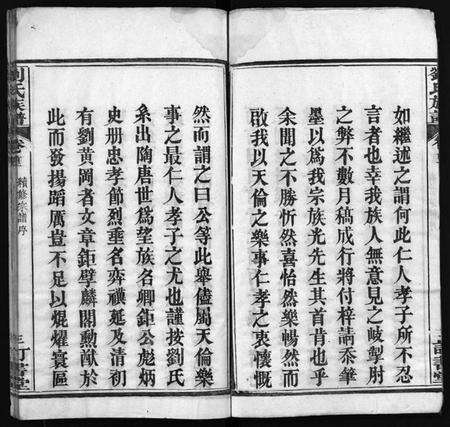 如繼述之謂何此仁人孝子所不忍
言者也幸我族人無意見之岐掣肘
之弊不數月稿成行將付梓請忝筆
墨以爲我宗族光先生其首肯也乎
余聞之不勝忻然喜怡然樂暢然而
啟我以天倫之樂事仁孝之衷懷慨
然而謂之曰公等此舉儘屬天倫樂
事之最仁人孝子之尤也謹按劉氏
系出陶唐世爲望族名卿鉅公彪炳
史册忠孝節烈垂名弈禩延及清初
有劉黃岡者文章鉅擘麟閣勳猷於
此而發揚蹈厲豈不足以焜燿寰區
劉氏族譜
卷首
續修族譜序
三